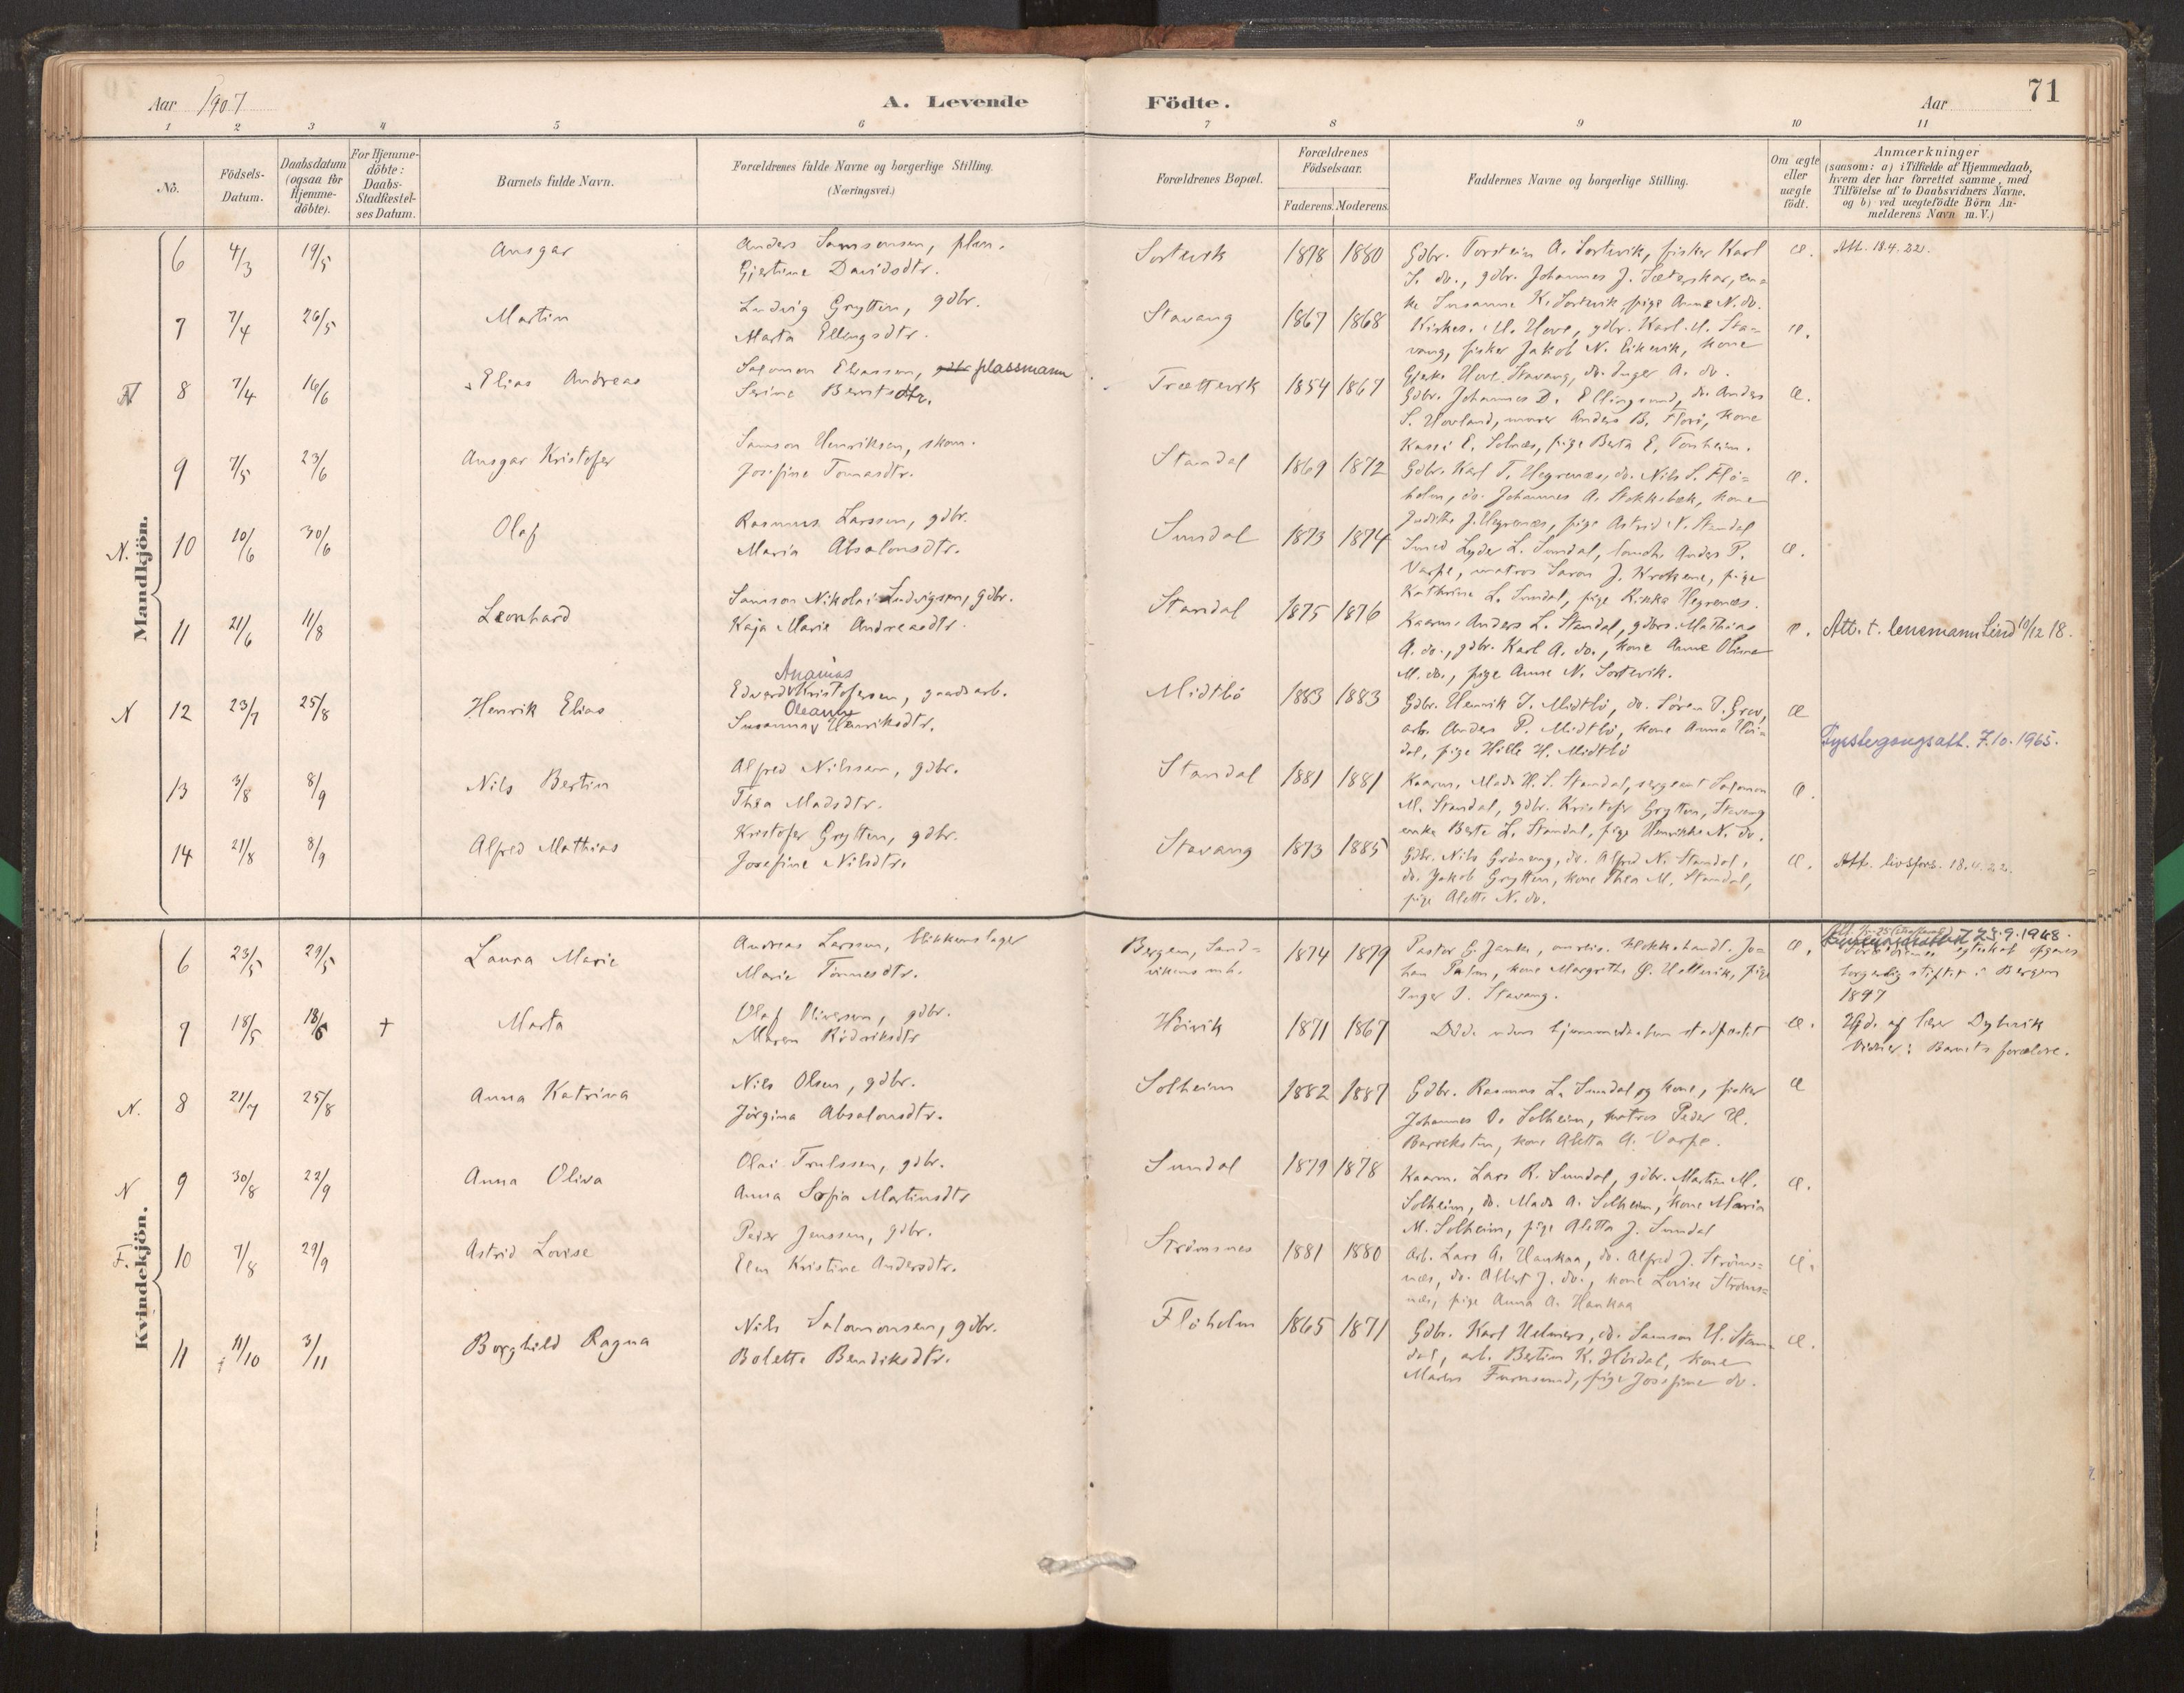 Aar 1907
A. Levende Födte.
Aar
71
1 2 3 4 5 6 7 8 9 10 11
No.
Födsels-Datum.
Daabsdatum (ogsaa for Hjemme-döbte).
For Hjemme-döbte: Daabs-Stadfæstel-ses Datum.
Barnets fulde Navn.
Forældrenes fulde Navne og borgerlige Stilling. (Næringsvei.)
Forældrenes Bopæl.
Forældrenes Födselsaar.
Faderens. Moderens.
Faddernes Navne og borgerlige Stilling.
Om ægte eller uægte födt.
Anmærkninger
(saasom: a) i Tilfælde af Hjemmedaab,
hvem der har forrettet samme, med
Tilföielse af to Daabsvidners Navne.
og b) ved uægtefödte Börn An-
melderens Navn m. V.)
Mandkjön.
6 4/3 19/5 Ansgar
Anders Samsonsen,
Gjertine Davidsdtr.
Sortevik 1878 1880
Gdbr. Torstein A. Sortevik, fisker Karl
S. do., gdbr. Johannes J. Sæterskar, en-
ke Susanne K. Sortevik, pige Anne N. do.
æ. Att. 18.4.22.
7 7/4 26/5 Martin
Ludvig Grytten, gdbr.
Marta Ellingsdtr.
Stavang 1867 1868
Kirkes. U. Hove, gdbr. Karl U. Sta-
vang, fisker Jakob N. Eikevik, kone
Hove Stavang, do. Inger A. do.
æ.
N 8 7/4 16/6 Elias Andreas
Salomon Eliassen, gdbr plassmann
Serine Berntsdtr.
Trættevik 1854 1867
Gdbr. Johannes D. Ellingsund, do. Anders
S. Hovland, murer Anders B. Florö, kone
E. Solnæs, pige Berta E. Tonheim.
æ.
9 7/5 23/6 Ansgar Kristofer
Samson Henriksen, skom.
Josefine Tomasdtr.
Standal 1869 1872
Gdbr. Karl T. Hegrenæs, do. Nils S. Flö-
holm, do. Johannes A. Stokkebæk, kone
Judithe J. Hegrenæs, pige Astrid N. Standal
æ.
N. 10 10/6 30/6 Olaf
Rasmus Larssen, gdbr.
Maria Absalonsdtr.
Sundal 1873 1874
Smed Lyder L. Sundal, landh. Anders P.
Varpe, matros Saron J. Krokene, pige
Kathrine L. Sundal, pige Rikka Hegrenæs.
æ.
11 21/6 11/8 Leonhard
Samson Nikolai Ludvigsen, gdbr.
Kaja Marie Andreasdtr.
Standal 1875 1876
Kaarm. Anders L. Standal, gdbrs. Mathias
A. do., gdbr. Karl A. do., kone Anne Oline
M. do., pige Anne N. Sortevik.
æ. Att. t. lensmann Lind 10/12 18.
N 12 23/7 25/8 Henrik Elias
Ananias
Edvard Kristofersen, gaardsarb.
Oleanna
Susanna Henriksdtr.
Midtbö 1883 1883
Gdbr. Henrik J. Midtbö, do. Sören J. Grov,
arb. Anders P. Midtbö, kone Anna Höi-
dal, pige Hille H. Midtbö
æ Fyrstegongsatt. 7.10.1965.
13 3/8 8/9 Nils Bertin
Alfred Nilssen, gdbr.
Thea Madsdtr.
Standal 1881 1881
Kaarm. Mads H. S. Standal, sergeant Salomon
M. Standal, gdbr. Kristofer Grytten, Stavang
enke Berte L. Standal, pige Henrikke N. do.
æ.
14 21/8 8/9 Alfred Mathias
Kristofer Grytten, gdbr.
Josefine Nilsdtr.
Stavang 1873 1885
Gdbr. Nils Gröneng, do. Alfred N. Standal,
do. Jakob Grytten, kone Thea M. Standal,
pige Alette N. do.
æ. Att. livsfors. 18.4.22.
Kvindekjön.
6 23/5 29/5 Laura Marie
Andreas Larssen, blikkenslager
Marie Tönnesdtr.
Bergen, Sand-
vikens mh.
1874 1879
Pastor G. Janke, omreis. Jo-
han Palm, kone Margrethe Hellevik, pige
Inger J. Stavang.
æ. 23.9.1948.
Forældrenes egteskab opgaves
borgerlig stiftet i Bergen
1897
7 18/5 18/5 † Marta
Olaf Oliversen, gdbr.
Maren Röderiksdtr
Höivik 1871 1867
Död. uden hjemmedaaben stadfæstet
æ. Hjd. af lærer Dybvik
Vidner: Barnets forældre.
N. 8 21/7 25/8 Anna Katrina
Nils Olsen, gdbr.
Jörgina Absalonsdtr.
Solheim 1882 1887
Gdbr. Rasmus L. Sundal og kone, fisker
Johannes O. Solheim, matros Peder H.
Barreksten, kone Aletta A. Varpe.
æ
N 9 30/8 22/9 Anna Oliva
Olai Trulssen, gdbr.
Anna Sofia Martinsdtr
Sundal 1879 1878
Kaarm. Lars R. Sundal, gdbr. Martin M.
Solheim, do. Mads A. Solheim, kone Maria
M. Solheim, pige Aletta J. Sundal
æ.
F. 10 7/8 29/9 Astrid Lovise
Peder Jenssen, gdbr.
Elen Kristine Andersdtr.
Strömsnes 1881 1880
Arb. Lars A. Haukaa, do. Alfred J. Ströms-
næs, do. Albert J. do., kone Lovise Ströms-
næs, pige Anna A. Haukaa
æ.
11 11/10 3/11 Borghild Ragna
Nils Salomonsen, gdbr.
Bolette Bendiksdtr.
Flöholm 1865 1871
Gdbr. Karl Helmers, do. Samson H. Stan-
dal, arb. Bertin K. Höidal, kone
Furusund, pige Josefine do.
æ.